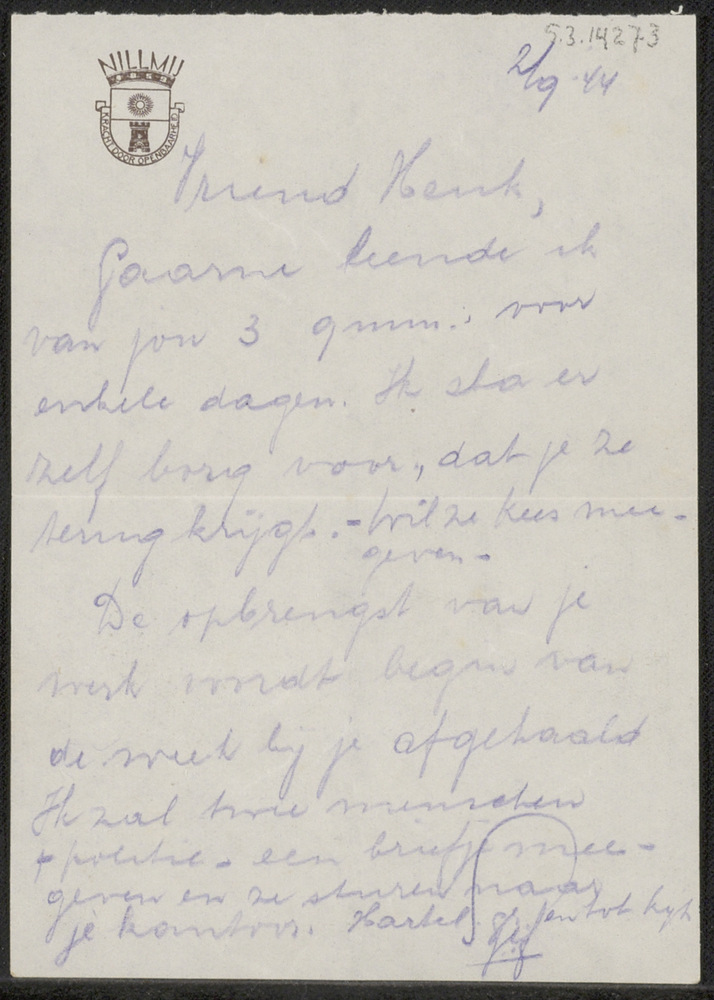 NILLMIJ
1859
KRACHT DOOR OPENBAARHEID
S.3.14273
2/9 '44
Vriend Henk,
Gaarne leende ik
van jou 3 gumm.: voor
enkele dagen. Ik sta er
zelf borg voor, dat je ze
terug krijgt. - Wil ze Kees mee-
geven -
De opbrengst van je
werk wordt begin van
de week bij je afgehaald
Ik zal twee menschen
politie - een briefje mee-
geven en ze sturen naar
je kantoor. Hartel. gr. en tot kijk